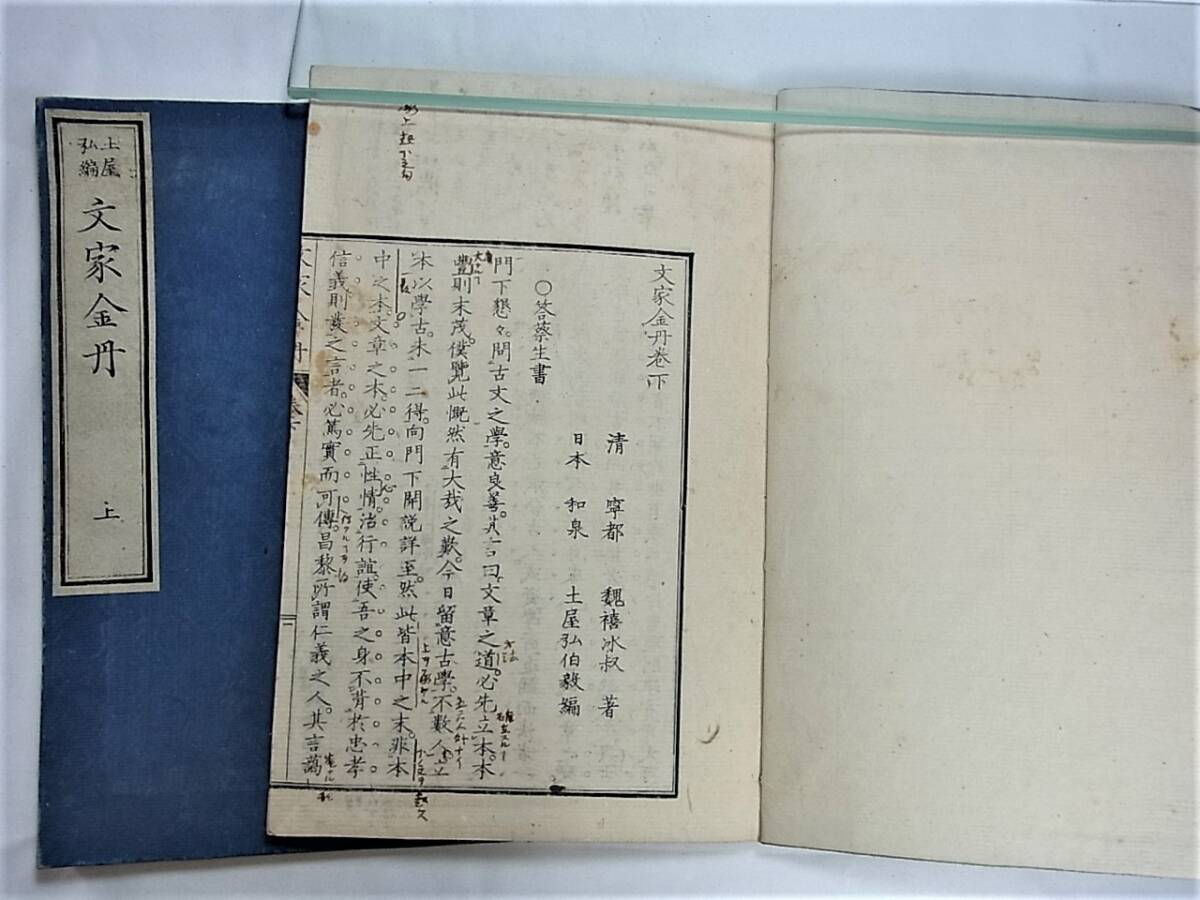 土屋
弘編
文家金丹
上
文家金丹卷下
清 寧都 魏禧冰叔 著
日本 和泉 土屋弘伯毅編
○答蔡生書
門下懇々。問古文之學。意良善。其言曰文章之道。必先立本。本
豐則末茂。僕覽此慨然有大哉之歎。今日留意古學。不數人。立
本以學古。未一二得。向門下開説詳至。然此皆本中之末。非本
中之本。文章之本。必先正性情。治行誼。使吾之身不背於忠孝
信義。則發之言者。必篤實而可傳。昌黎所謂仁義之人。其言藹